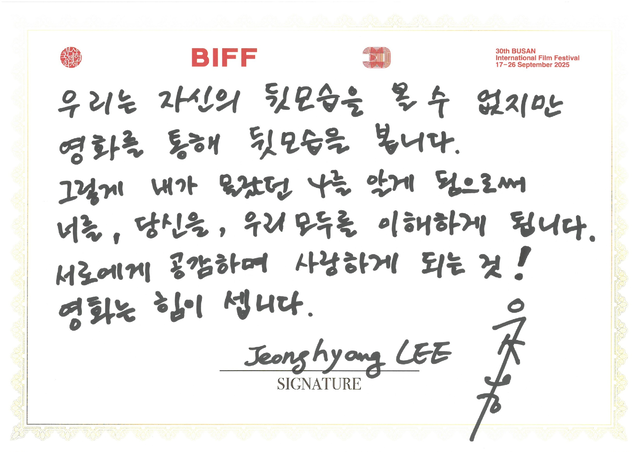 BIFF
30
30th BUSAN
International Film Festival
17–26 September 2025
우리는 자신의 뒷모습을 볼 수 없지만
영화를 통해 뒷모습을 봅니다.
그렇게 내가 몰랐던 나를 알게 됨으로써
너를, 당신을, 우리 모두를 이해하게 됩니다.
서로에게 공감하며 사랑하게 되는 것!
영화는 힘이 셉니다.
Jeonghyang LEE
SIGNATURE